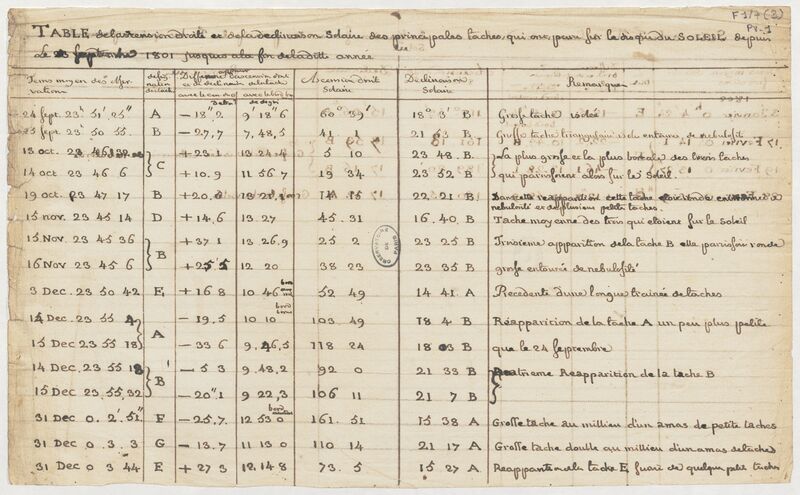 F 1/7 (2)
Pr. 1
TABLE de la ascension droite et de la declinaison Solaire des principales taches qui ont paru sur le disque du SOLEIL depuis
le Septembre 1801 jusques a la fin de la dite année
Tems moyen des observations Difference Ascension droite Solaire Declinaison Solaire Remarques
24 Sept. 23 51' 25" A − 18" 2 9' 18" 6 60° 39' 18° 3' B Grosse tache isolée
25 Sept. 23 50 55 B − 27,7 7,48,5 41 1 21 B Grosse tache entourée de nebulosité
13 oct. 23 46 C + 23.1 13 24 5 10 23 48. B La plus grosse et la plus boreale des trois taches
14 oct 23 46 6 + 10.9 11 56 7 19 34 23 52 B qui paroissoient alors sur le Soleil
19 oct. 23 47 17 B + 20 13 22 21 B Dans cette reapparition cette tache entourée de
nebulosité et de plusieurs petites taches.
15 nov. 23 45 14 D + 14.6 13.27 45.31 16.40. B Tache moyenne des trois qui etoient sur le Soleil
15 Nov. 23 45 36 B + 37 1 13 26.9 25 2 23 25 B Troisieme apparition de la tache B elle paroissoit ronde
16 Nov 23 45 6 + 25" 5 12 20 38 23 23 35 B grosse entourée de nebulosité
3 Dec. 23 50 42 E + 16 8 10 46 52 49 14 41. A Precedente d'une longue trainée de taches
14 Dec. 23 55 A − 19,5 10 10 103 49 18 4 B Réapparition de la tache A un peu plus petite
15 Dec 23 55 18 − 33 6 9, 118 24 18 3 B que le 24 Septembre
14 Dec. 23 55 18 B − 5 3 9.48,2 92 0 21 33 B Reapparition de la tache B
15 Dec. 23,55,32 − 20" 1 9 22,3 106 11 21 7 B
31 Dec 0. 2'. 51" F − 25.7. 12 53 0 161. 51 15 38 A Grosse tache au millieu d'un amas de petite taches
31 Dec 0. 3. 3 G − 13.7 11 13 0 110 14 21 17 A Grosse tache double au millieu d'un amas de taches
31 Dec 0 3 44 E + 27 3 12.14 8 73. 5 15 27 A Reapparition de la tache E, suivie de quelque petite taches
OBSERVATOIRE DE PARIS